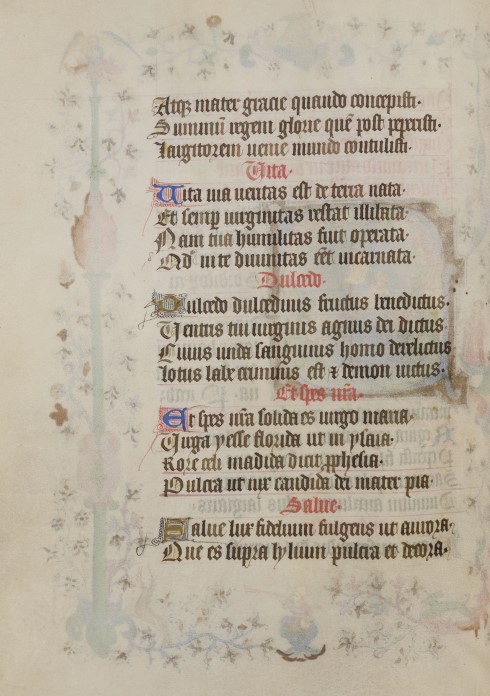 Atqz mater gracie quando concepisti·
Summū regem glorie quē post peperisti·
Largitorem uenie mundo contulisti·
Vita·
Vita uia ueritas est de terra nata·
Et semp uirginitas restat illibata·
Nam tua humilitas fuit operata·
Qd' in te diuinitas eēt incarnata·
Dulcedo·
Dulcedo dulcedinis fructus benedictus·
Ventris tui uirginis agnus dei dictus
Cuius unda sanguinis homo derelictus
lotus labe criminis est ⁊ demon uictus·
Et spes nr̄a·
Et spes nr̄a solida es uirgo maria·
Virga yesse florida ut in ysaia·
Rore celi madida dicit pphesia·
Pulcra ut nix candida dei mater pia·
Salue·
Salue lux fidelium fulgens ut aurora·
Que es supra lylium pulcra et decora·